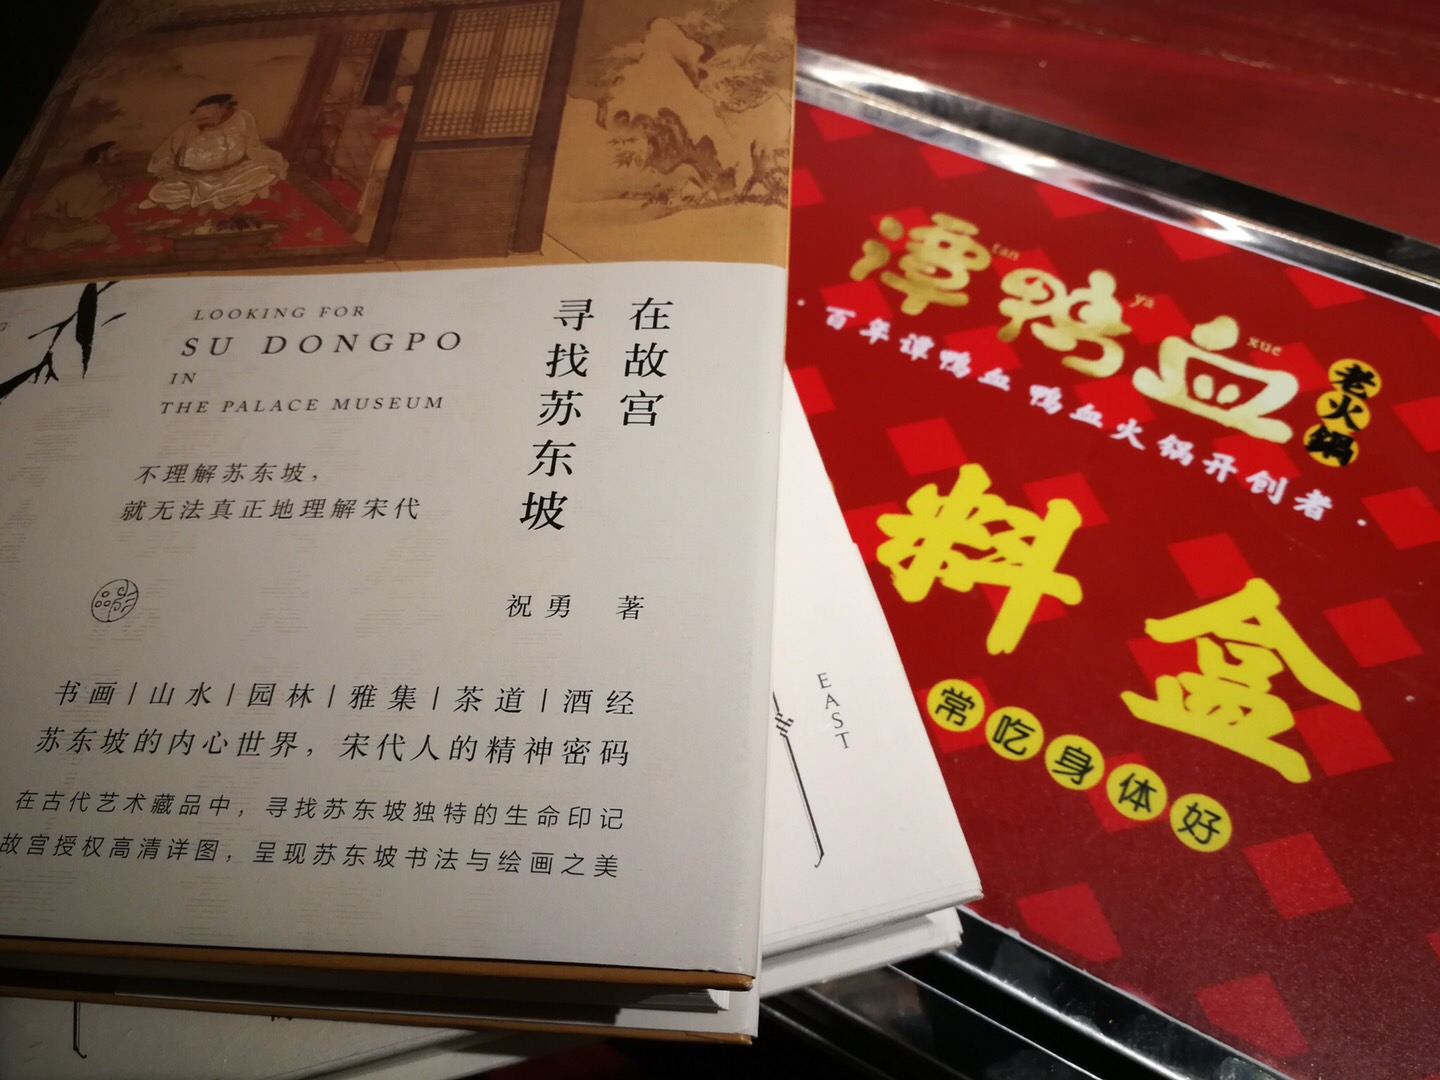 LOOKING FOR
SU DONGPO
IN
THE PALACE MUSEUM
在故宫
寻找苏东坡
不理解苏东坡，
就无法真正地理解宋代
祝勇 著
书画|山水|园林|雅集|茶道|酒经
苏东坡的内心世界，宋代人的精神密码
在古代艺术藏品中，寻找苏东坡独特的生命印记
故宫授权高清详图，呈现苏东坡书法与绘画之美
EAST
tan ya xue
谭鸭血
老火锅
·百年谭鸭血 鸭血火锅开创者·
料盒
常吃身体好